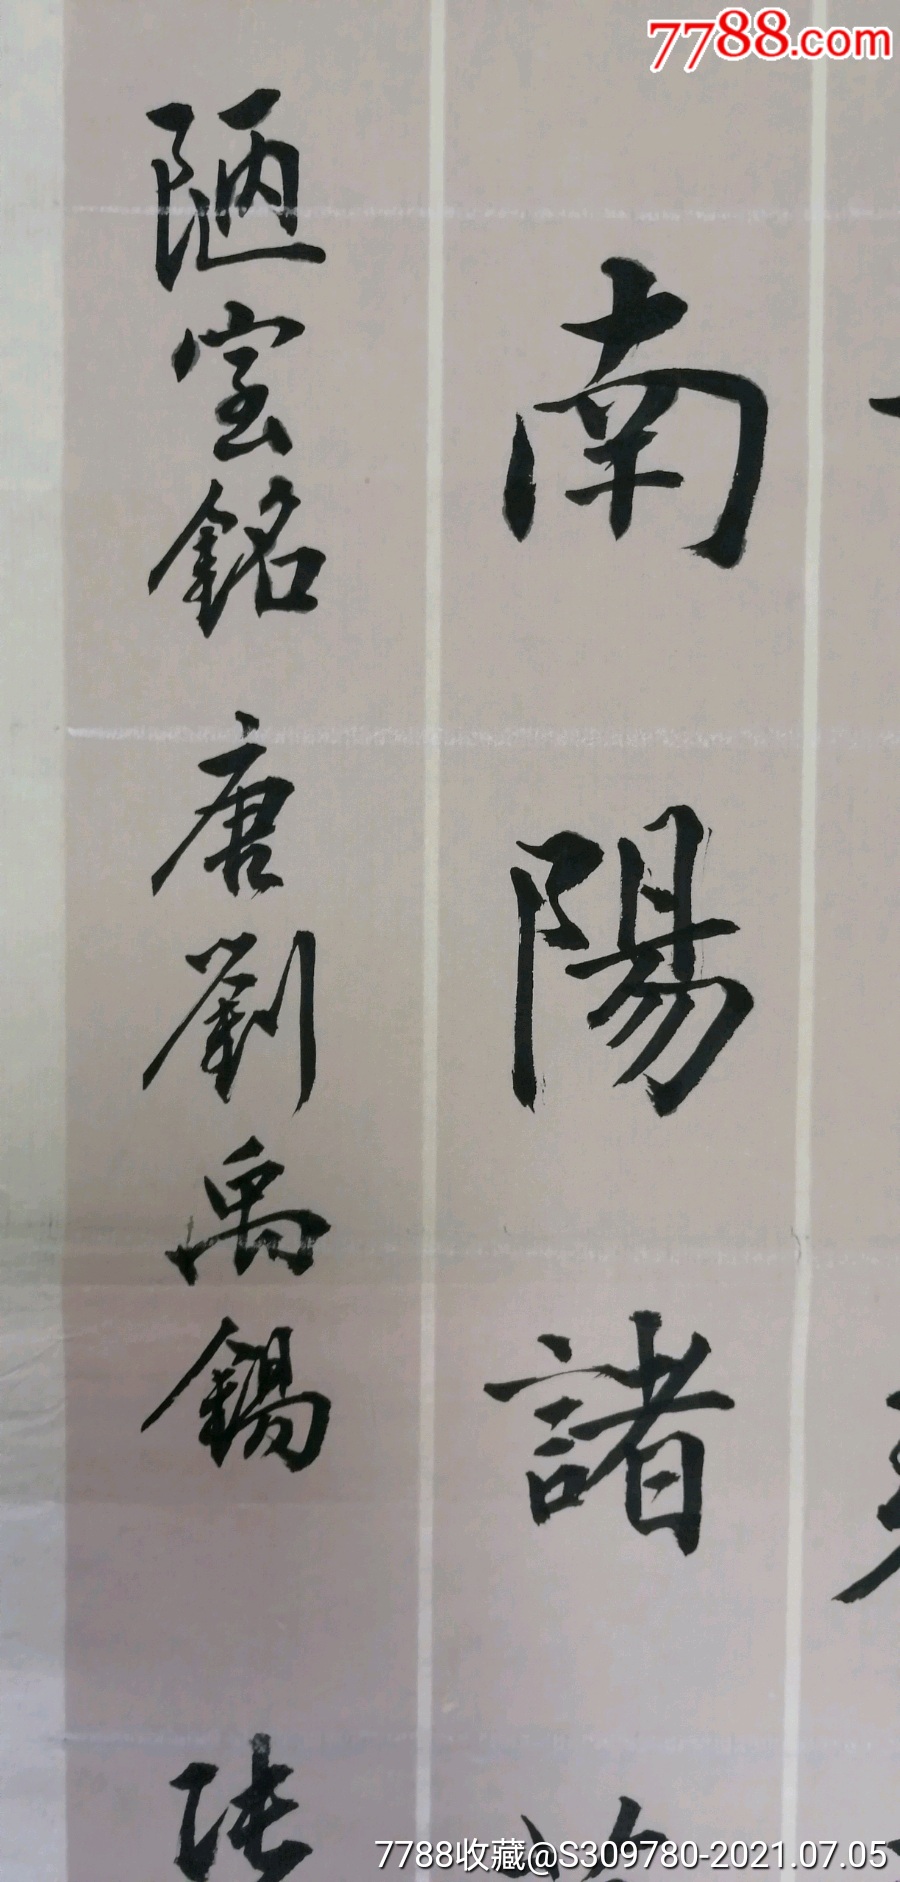 7788.com
南陽諸
陋室銘 唐劉禹錫 張
7788收藏@S309780-2021.07.05